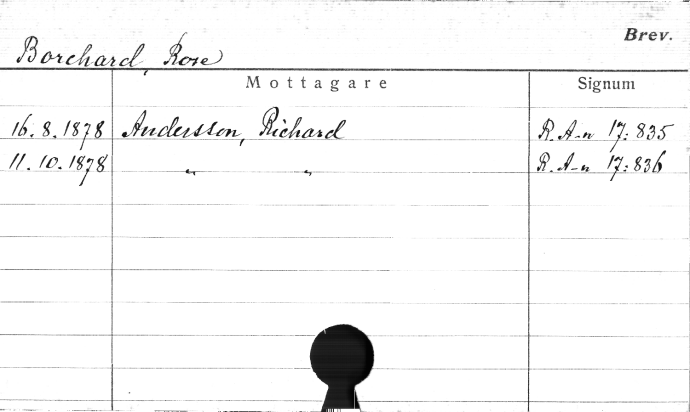 Brev.
Borchard, Rose
Mottagare Signum
16.8.1878 Andersson, Richard R.A-n 17:835
11.10.1878 " " R.A-n 17:836